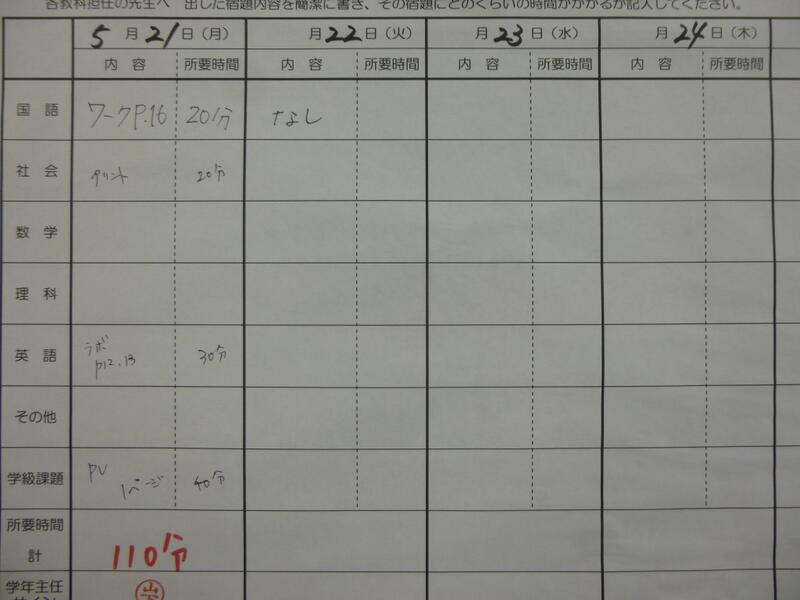 各教科担任の先生へ 出した宿題内容を簡潔に書き、その宿題にどのくらいの時間がかかるか記入してください。
5月21日（月） 月22日（火） 月23日（水） 月24日（木）
内容 所要時間 内容 所要時間 内容 所要時間 内容 所要時間
国語 ワークP.16 20分 なし
社会 プリント 20分
数学
理科
英語 ラボ 30分
p12.13
その他
学級課題 PV 40分
1ページ
所要時間
計 110分
学年主任
サイン